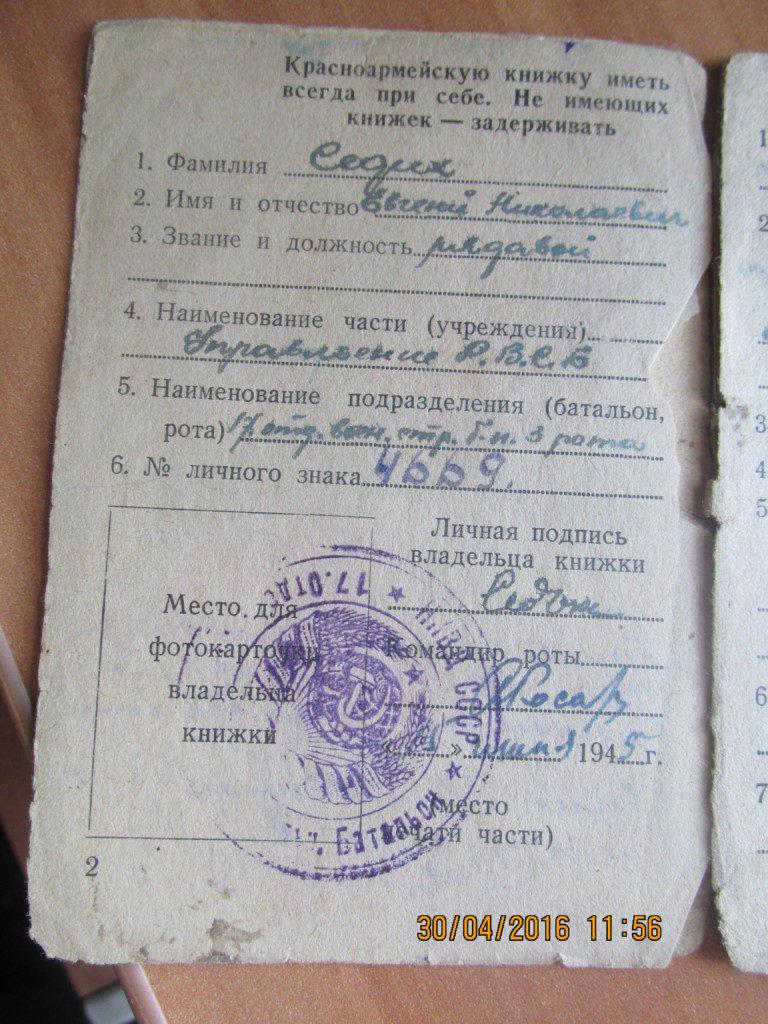 Красноармейскую книжку иметь
всегда при себе. Не имеющих
книжек — задерживать
1. Фамилия Седих
2. Имя и отчество Евгений Николаевич
3. Звание и должность рядавой
4. Наименование части (учреждения)
Управление Р.В.С.Б
5. Наименование подразделения (батальон,
рота) 17 отд. вон. стр. б-н. 3 рота
6. № личного знака 4669.
Личная подпись
владельца книжки
Место для
фотокарточки
владельца
книжки
Командир роты
Косар
« » 1945 г.
(место
печати части)
17. ОТД
СССР
Батальон
2
30/04/2016 11:56